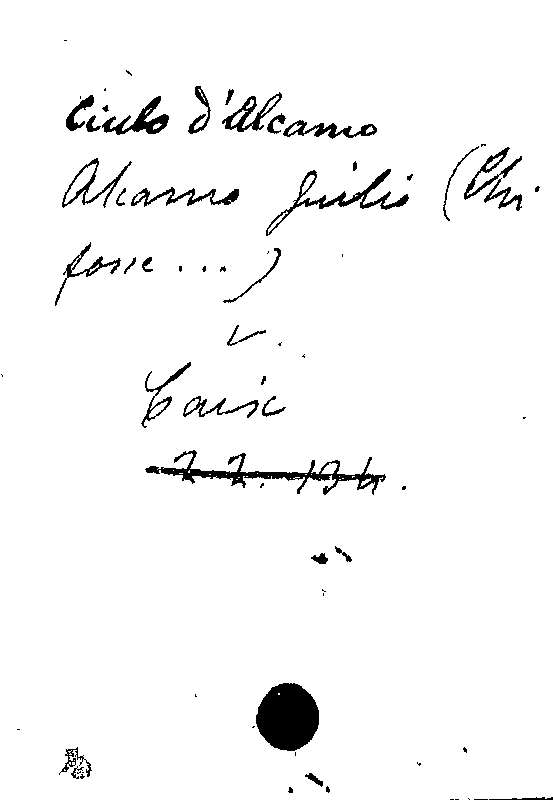 Ciulo d'Alcamo
Alcamo Giulio (Chi
fosse ...)
v.
Caix
22. 134.